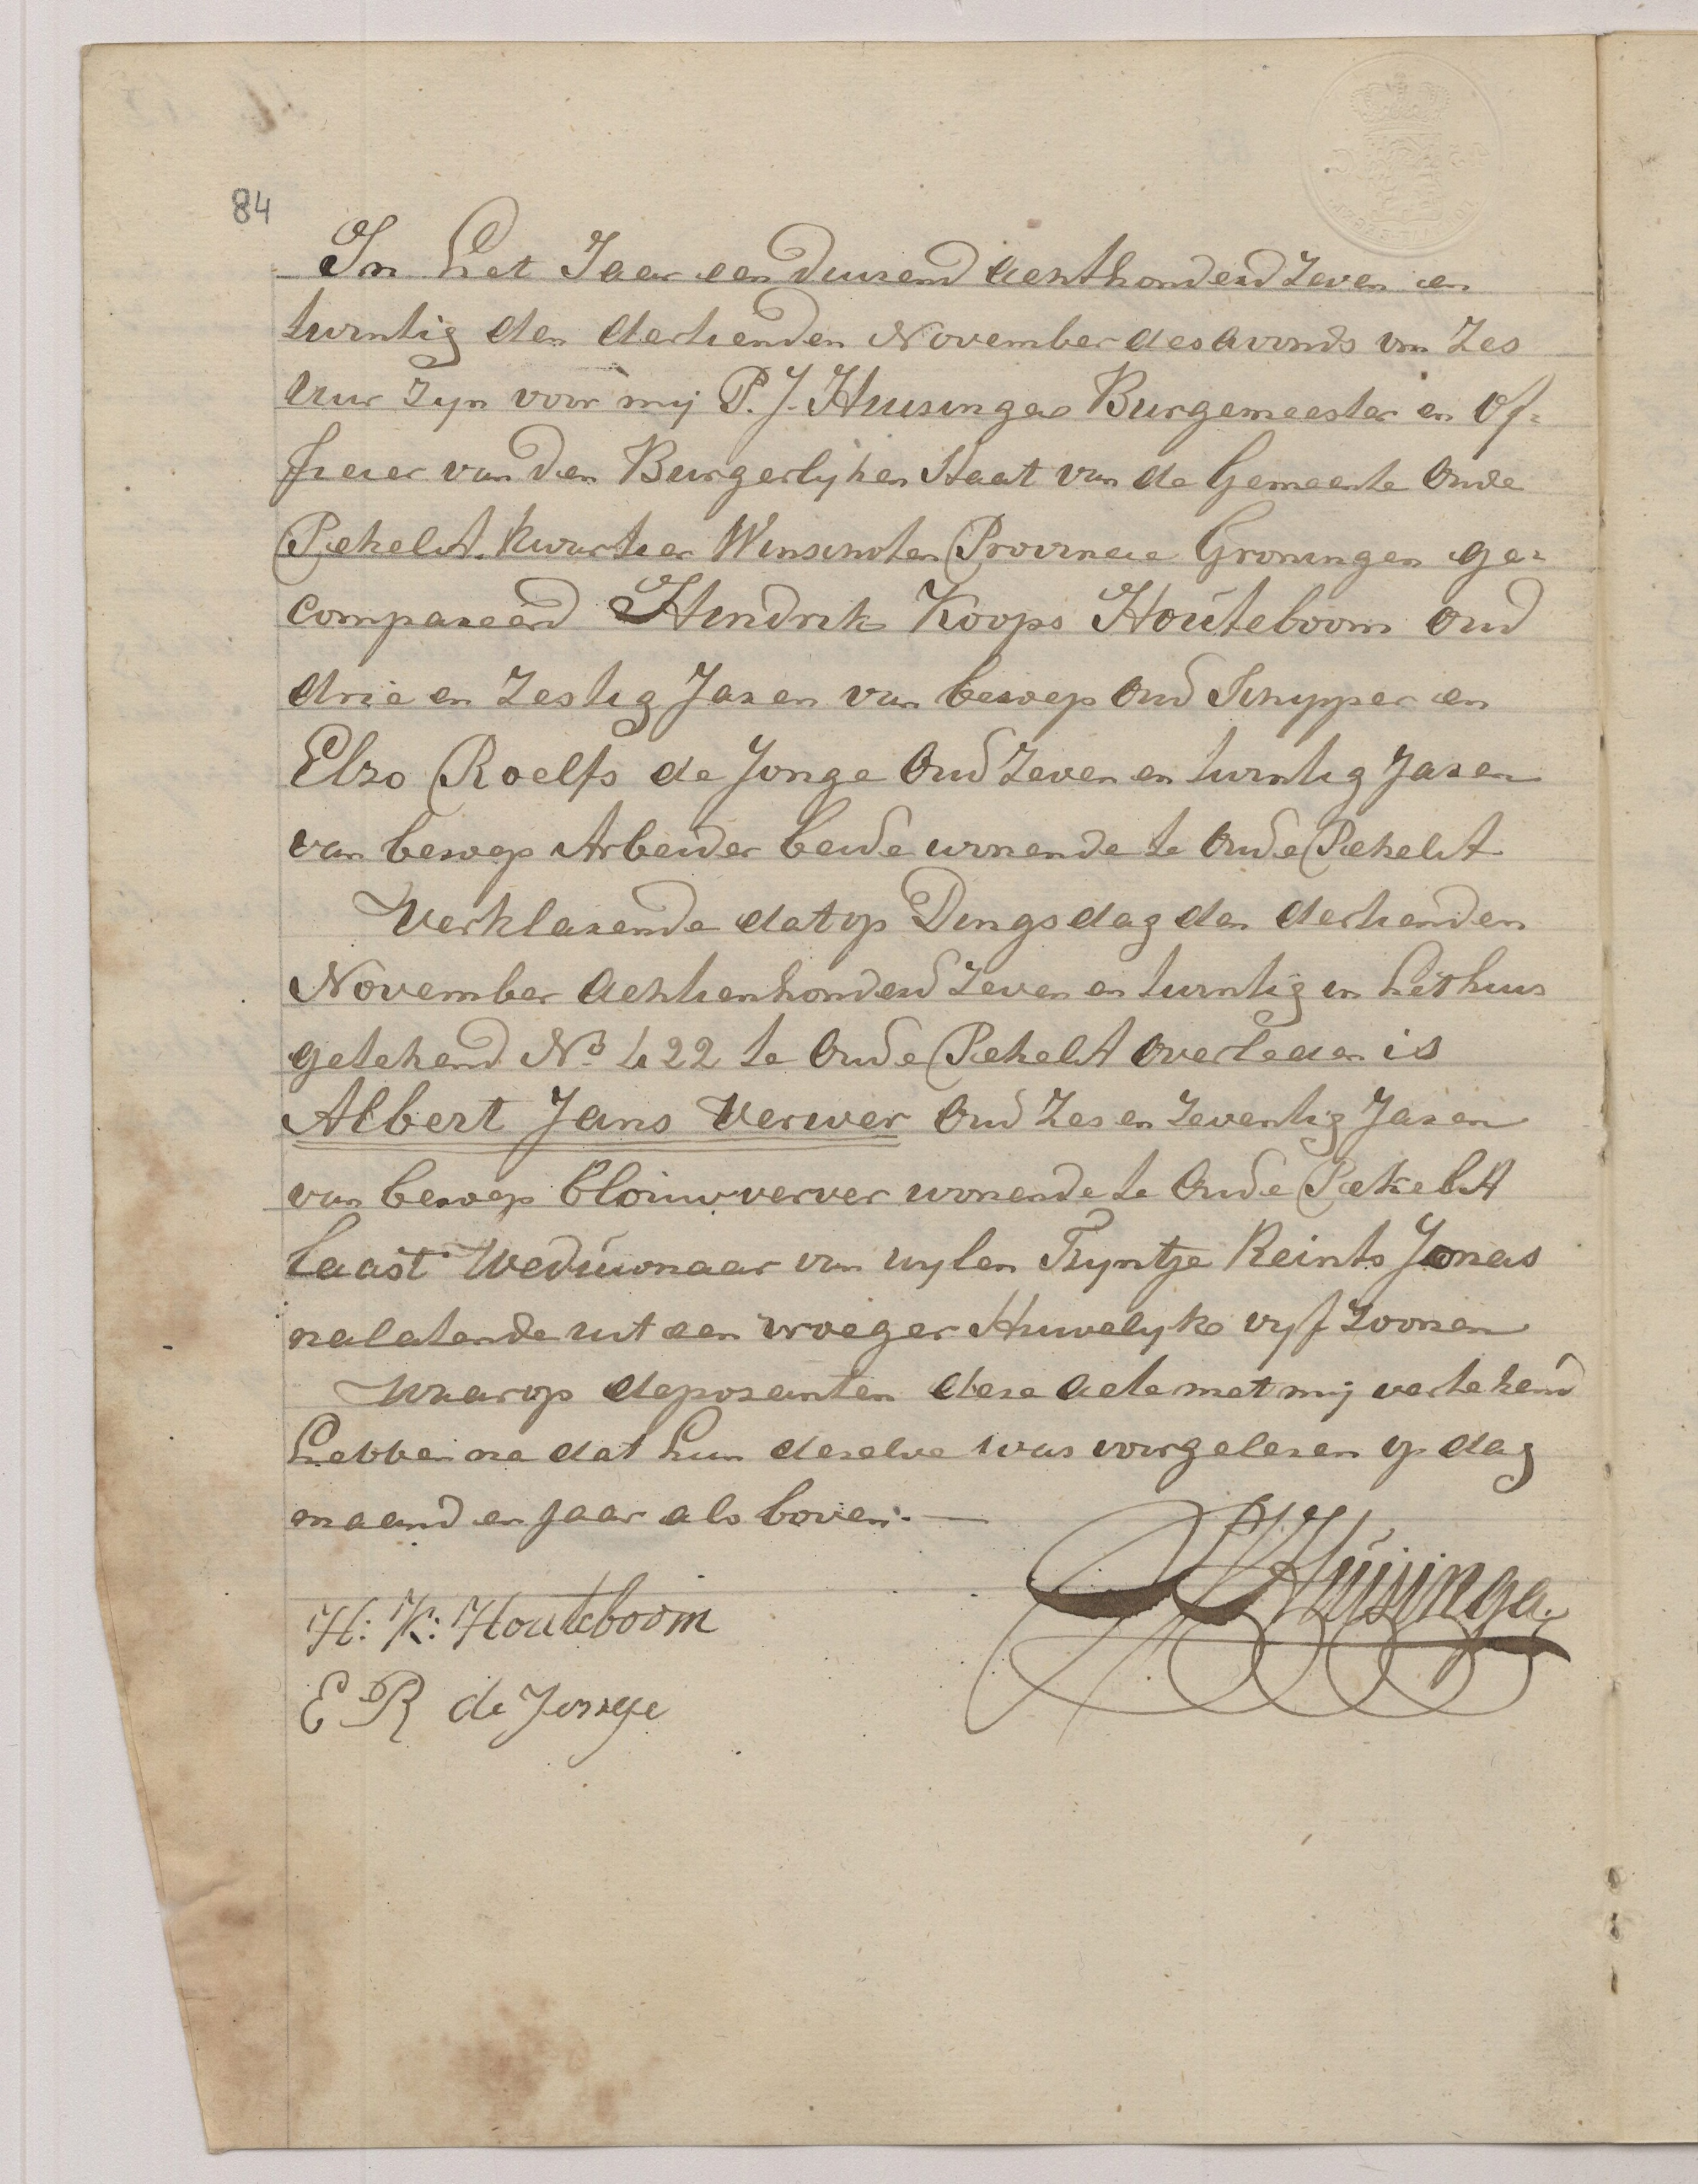 84
In het Jaar een duisend achthonderd zeven en
twintig den dertienden November des avonds om zes
uur zyn voor mij P. J. Huisinga Burgemeester en Of-
ficier van den Burgerlyken Staat van de Gemeente Oude
Pekel A. Kwartier Winschoten Provincie Groningen ge-
compareerd Hindrik Koops Houteboom oud
drie en zestig Jaren van beroep oud Schypper en
Elzo Roelfs de Jonge oud zeven en twintig Jaren
van beroep Arbeider beide wonende te Oude Pekel A
Verklarende dat op Dingsdag den dertienden
November achtienhonderd zeven en twintig in het huis
getekend No. 422 te Oude Pekel A overleden is
Albert Jans Verwer oud zes en zeventig Jaren
van beroep blouwverver wonende te Oude Pekel A
laast Weduwnaar van wylen Tryntje Reints Jonas
nalatende uit een vroeger Huwelyk vyf zoonen
Waarop deposanten deze acte met mij vertekend
hebben na dat hun dezelve was voorgelezen op dag
maand en jaar als boven.—
Huisinga.
H: K: Houteboom
E R de Jonge